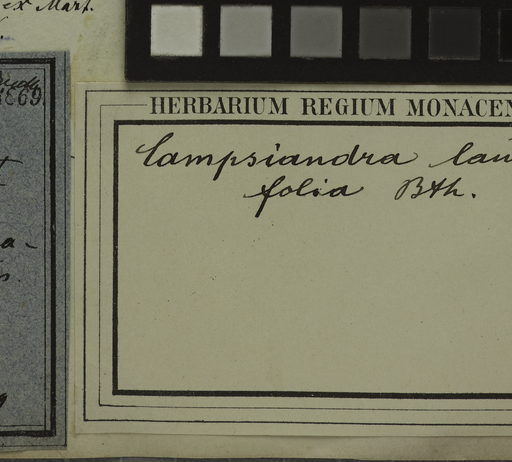 ex Mart.
1869.
HERBARIUM REGIUM MONACEN
Campsiandra lau
folia Bth.